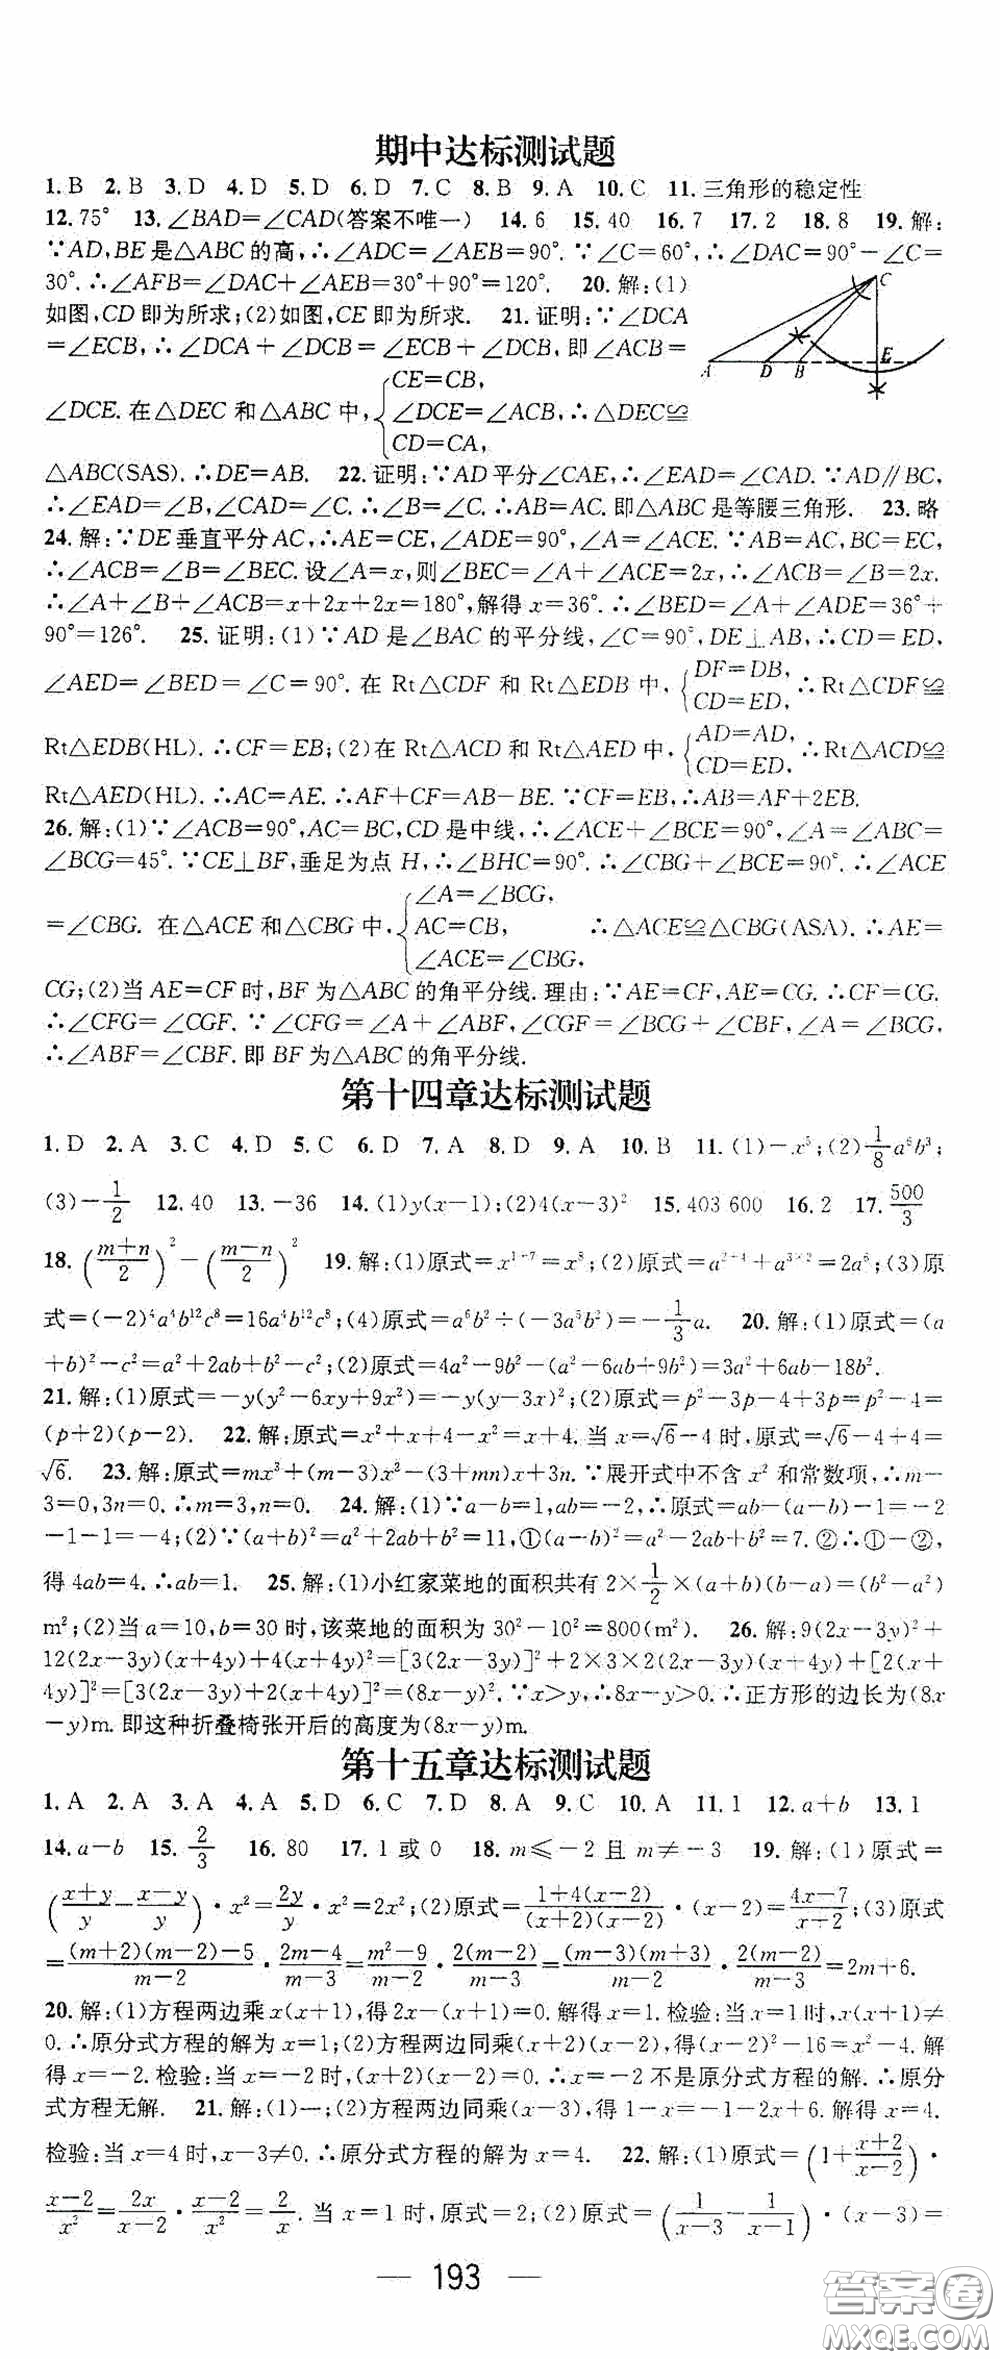 期中达标测试题
1. B 2. B 3. D 4. D 5. D 6. D 7. C 8. B 9. A 10. C 11. 三角形的稳定性
12. 75° 13. ∠BAD=∠CAD(答案不唯一) 14. 6 15. 40 16. 7 17. 2 18. 8 19. 解:
∵AD,BE是△ABC的高,∴∠ADC=∠AEB=90°.∵∠C=60°,∴∠DAC=90°-∠C=
30°.∴∠AFB=∠DAC+∠AEB=30°+90°=120°. 20. 解:(1)
如图,CD即为所求;(2)如图,CE即为所求. 21. 证明:∵∠DCA
=∠ECB,∴∠DCA+∠DCB=∠ECB+∠DCB,即∠ACB=
A D B E C
∠DCE.在△DEC和△ABC中,{CE=CB, ∠DCE=∠ACB, CD=CA, ∴△DEC≌
△ABC(SAS).∴DE=AB. 22. 证明:∵AD平分∠CAE,∴∠EAD=∠CAD.∵AD∥BC,
∴∠EAD=∠B,∠CAD=∠C.∴∠B=∠C.∴AB=AC.即△ABC是等腰三角形. 23. 略
24. 解:∵DE垂直平分AC,∴AE=CE,∠ADE=90°,∠A=∠ACE.∵AB=AC,BC=EC,
∴∠ACB=∠B=∠BEC.设∠A=x,则∠BEC=∠A+∠ACE=2x,∴∠ACB=∠B=2x.
∴∠A+∠B+∠ACB=x+2x+2x=180°,解得x=36°.∴∠BED=∠A+∠ADE=36°+
90°=126°. 25. 证明:(1)∵AD是∠BAC的平分线,∠C=90°,DE⊥AB,∴CD=ED,
∠AED=∠BED=∠C=90°.在Rt△CDF和Rt△EDB中,{DF=DB, CD=ED, ∴Rt△CDF≌
Rt△EDB(HL).∴CF=EB;(2)在Rt△ACD和Rt△AED中,{AD=AD, CD=ED, ∴Rt△ACD≌
Rt△AED(HL).∴AC=AE.∴AF+CF=AB-BE.∵CF=EB,∴AB=AF+2EB.
26. 解:(1)∵∠ACB=90°,AC=BC,CD是中线,∴∠ACE+∠BCE=90°,∠A=∠ABC=
∠BCG=45°.∵CE⊥BF,垂足为点H,∴∠BHC=90°.∴∠CBG+∠BCE=90°.∴∠ACE
=∠CBG.在△ACE和△CBG中,{∠A=∠BCG, AC=CB, ∠ACE=∠CBG, ∴△ACE≌△CBG(ASA).∴AE=
CG;(2)当AE=CF时,BF为△ABC的角平分线.理由:∵AE=CF,AE=CG.∴CF=CG.
∴∠CFG=∠CGF.∵∠CFG=∠A+∠ABF,∠CGF=∠BCG+∠CBF,∠A=∠BCG,
∴∠ABF=∠CBF.即BF为△ABC的角平分线.
第十四章达标测试题
1. D 2. A 3. C 4. D 5. C 6. D 7. A 8. D 9. A 10. B 11. (1)-x⁵;(2)1/8a⁶b³;
(3)-1/2 12. 40 13. -36 14. (1)y(x-1);(2)4(x-3)² 15. 403 600 16. 2 17. 500/3
18. ((m+n)/2)²-((m-n)/2)² 19. 解:(1)原式=x¹⁺⁷=x⁸;(2)原式=a²⁺⁴+a³ˣ²=2a⁶;(3)原
式=(-2)⁴a⁴b¹²c⁸=16a⁴b¹²c⁸;(4)原式=a⁶b²÷(-3a⁵b²)=-1/3a. 20. 解:(1)原式=(a
+b)²-c²=a²+2ab+b²-c²;(2)原式=4a²-9b²-(a²-6ab+9b²)=3a²+6ab-18b².
21. 解:(1)原式=-y(y²-6xy+9x²)=-y(y-3x)²;(2)原式=p²-3p-4+3p=p²-4=
(p+2)(p-2). 22. 解:原式=x²+x+4-x²=x+4.当x=√6-4时,原式=√6-4+4=
√6. 23. 解:原式=mx³+(m-3)x²-(3+mn)x+3n.∵展开式中不含x²和常数项,∴m-
3=0,3n=0.∴m=3,n=0. 24. 解:(1)∵a-b=1,ab=-2,∴原式=ab-(a-b)-1=-2
-1-1=-4;(2)∵(a+b)²=a²+2ab+b²=11,①(a-b)²=a²-2ab+b²=7.②∴①-②,
得4ab=4.∴ab=1. 25. 解:(1)小红家菜地的面积共有2×1/2×(a+b)(b-a)=(b²-a²)
m²;(2)当a=10,b=30时,该菜地的面积为30²-10²=800(m²). 26. 解:9(2x-3y)²+
12(2x-3y)(x+4y)+4(x+4y)²=[3(2x-3y)]²+2×3×2(2x-3y)(x+4y)+[2(x+
4y)]²=[3(2x-3y)+2(x+4y)]²=(8x-y)².∵x>y,∴8x-y>0.∴正方形的边长为(8x
-y)m.即这种折叠椅张开后的高度为(8x-y)m.
第十五章达标测试题
1. A 2. A 3. A 4. A 5. D 6. C 7. D 8. A 9. C 10. A 11. 1 12. a+b 13. 1
14. a-b 15. 2/3 16. 80 17. 1或0 18. m≤-2且m≠-3 19. 解:(1)原式=
((x+y)/y-(x-y)/y)·x²=2y/y·x²=2x²;(2)原式=(1+4(x-2))/((x+2)(x-2))·(x-2)=(4x-7)/(x+2);(3)原式
=((m+2)(m-2)-5)/(m-2)·(2m-4)/(m-3)=(m²-9)/(m-2)·2(m-2)/(m-3)=(m-3)(m+3)/(m-2)·2(m-2)/(m-3)=2m+6.
20. 解:(1)方程两边乘x(x+1),得2x-(x+1)=0.解得x=1.检验:当x=1时,x(x+1)≠
0.∴原分式方程的解为x=1;(2)方程两边同乘(x+2)(x-2),得(x-2)²-16=x²-4.解
得x=-2.检验:当x=-2时,(x+2)(x-2)=0.∴x=-2不是原分式方程的解.∴原分
式方程无解. 21. 解:(1)一;(2)方程两边同乘(x-3),得1-x=-1-2x+6.解得x=4.
检验:当x=4时,x-3≠0.∴原分式方程的解为x=4. 22. 解:(1)原式=(1+(x+2)/(x-2))·
(x-2)/x²=2x/(x-2)·(x-2)/x²=2/x.当x=1时,原式=2;(2)原式=(1/(x-3)-1/(x-1))·(x-3)=
193
答案圈
MXQE.COM